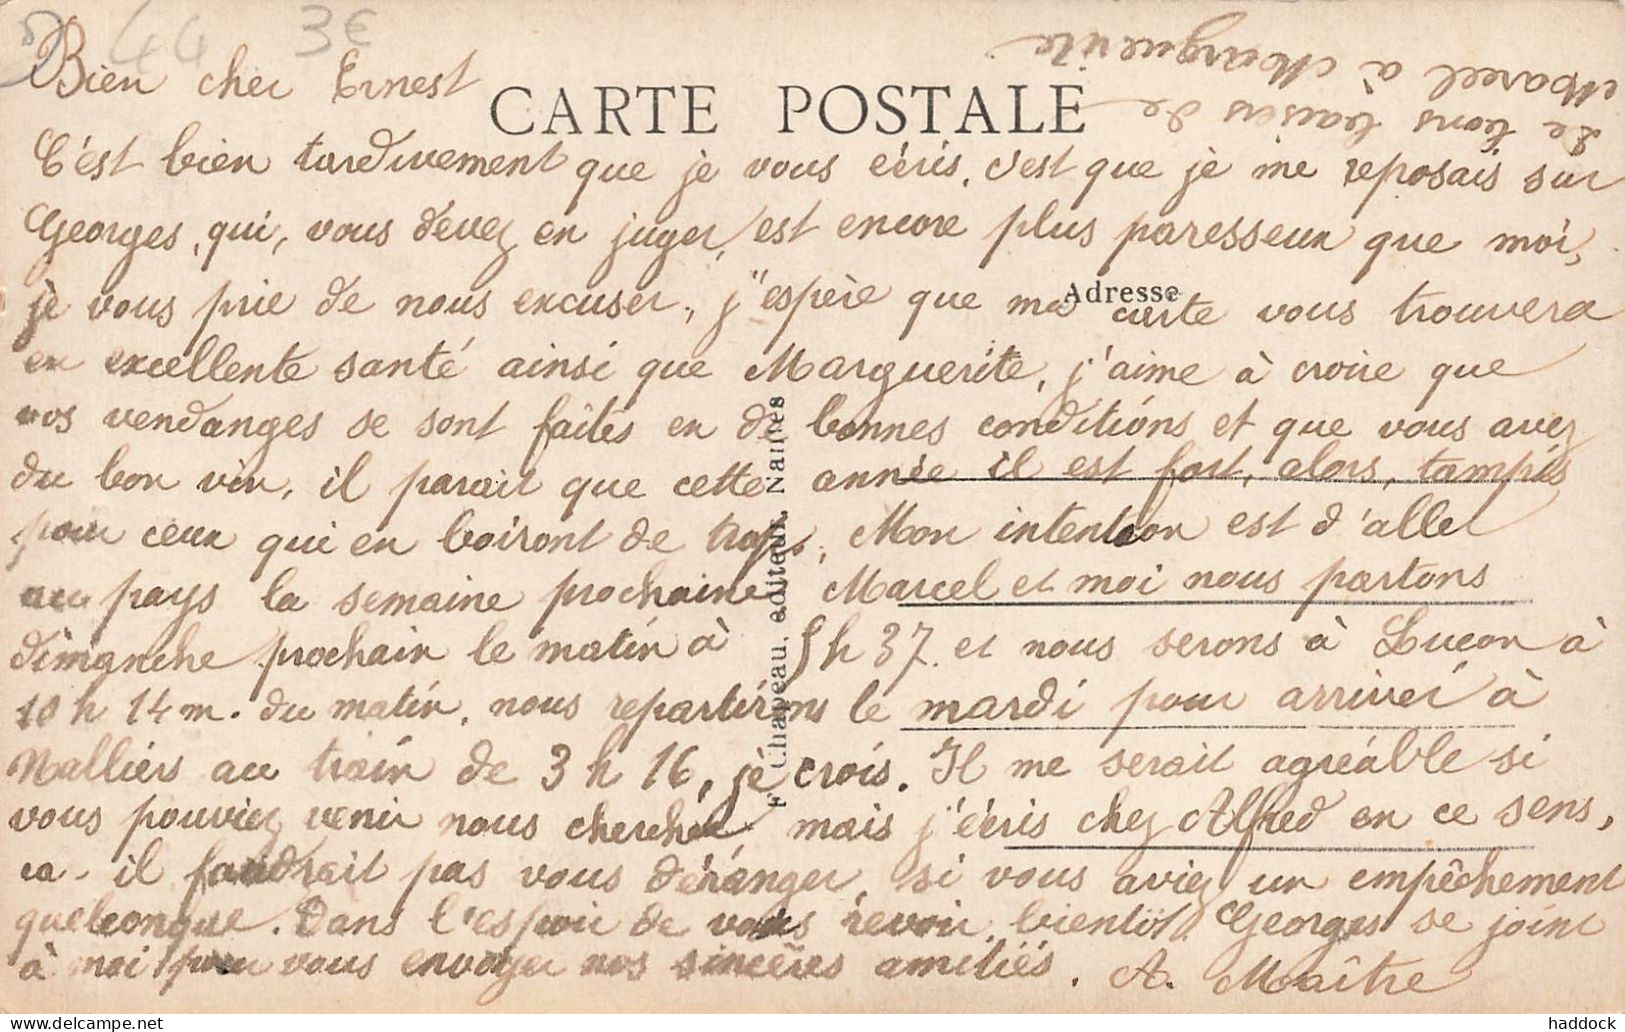 44 3€
Bien cher Ernest
CARTE POSTALE
C'est bien tardivement que je vous écris, c'est que je me reposais sur
Georges, qui, vous devez en juger, est encore plus paresseux que moi,
je vous prie de nous excuser, j'espère que ma carte vous trouvera
Adresse
en excellente santé ainsi que Marguerite, j'aime à croire que
vos vendanges se sont faites en de bonnes conditions et que vous avez
du bon vin, il parait que cette année il est fort, alors, tampis
pour ceux qui en boiront de trop. Mon intention est d'aller
au pays la semaine prochaine Marcel et moi nous partons
dimanche prochain le matin à 5h 37. et nous serons à Luçon à
10 h 14 m. du matin, nous repartirons le mardi pour arriver à
Nalliers au train de 3 h 16, je crois. Il me serait agréable si
vous pouviez venir nous chercher mais j'écris chez Alfred en ce sens,
ca. il faudrait pas vous déranger, si vous aviez un empêchement
quelconque. Dans l'espoir de vous revoir bientôt. Georges se joint
à moi pour vous envoyer nos sincères amitiés. A. Maître
De bons baisers de
Marcel à Marguerite
F. Chapeau, éditeur, Nantes
haddock